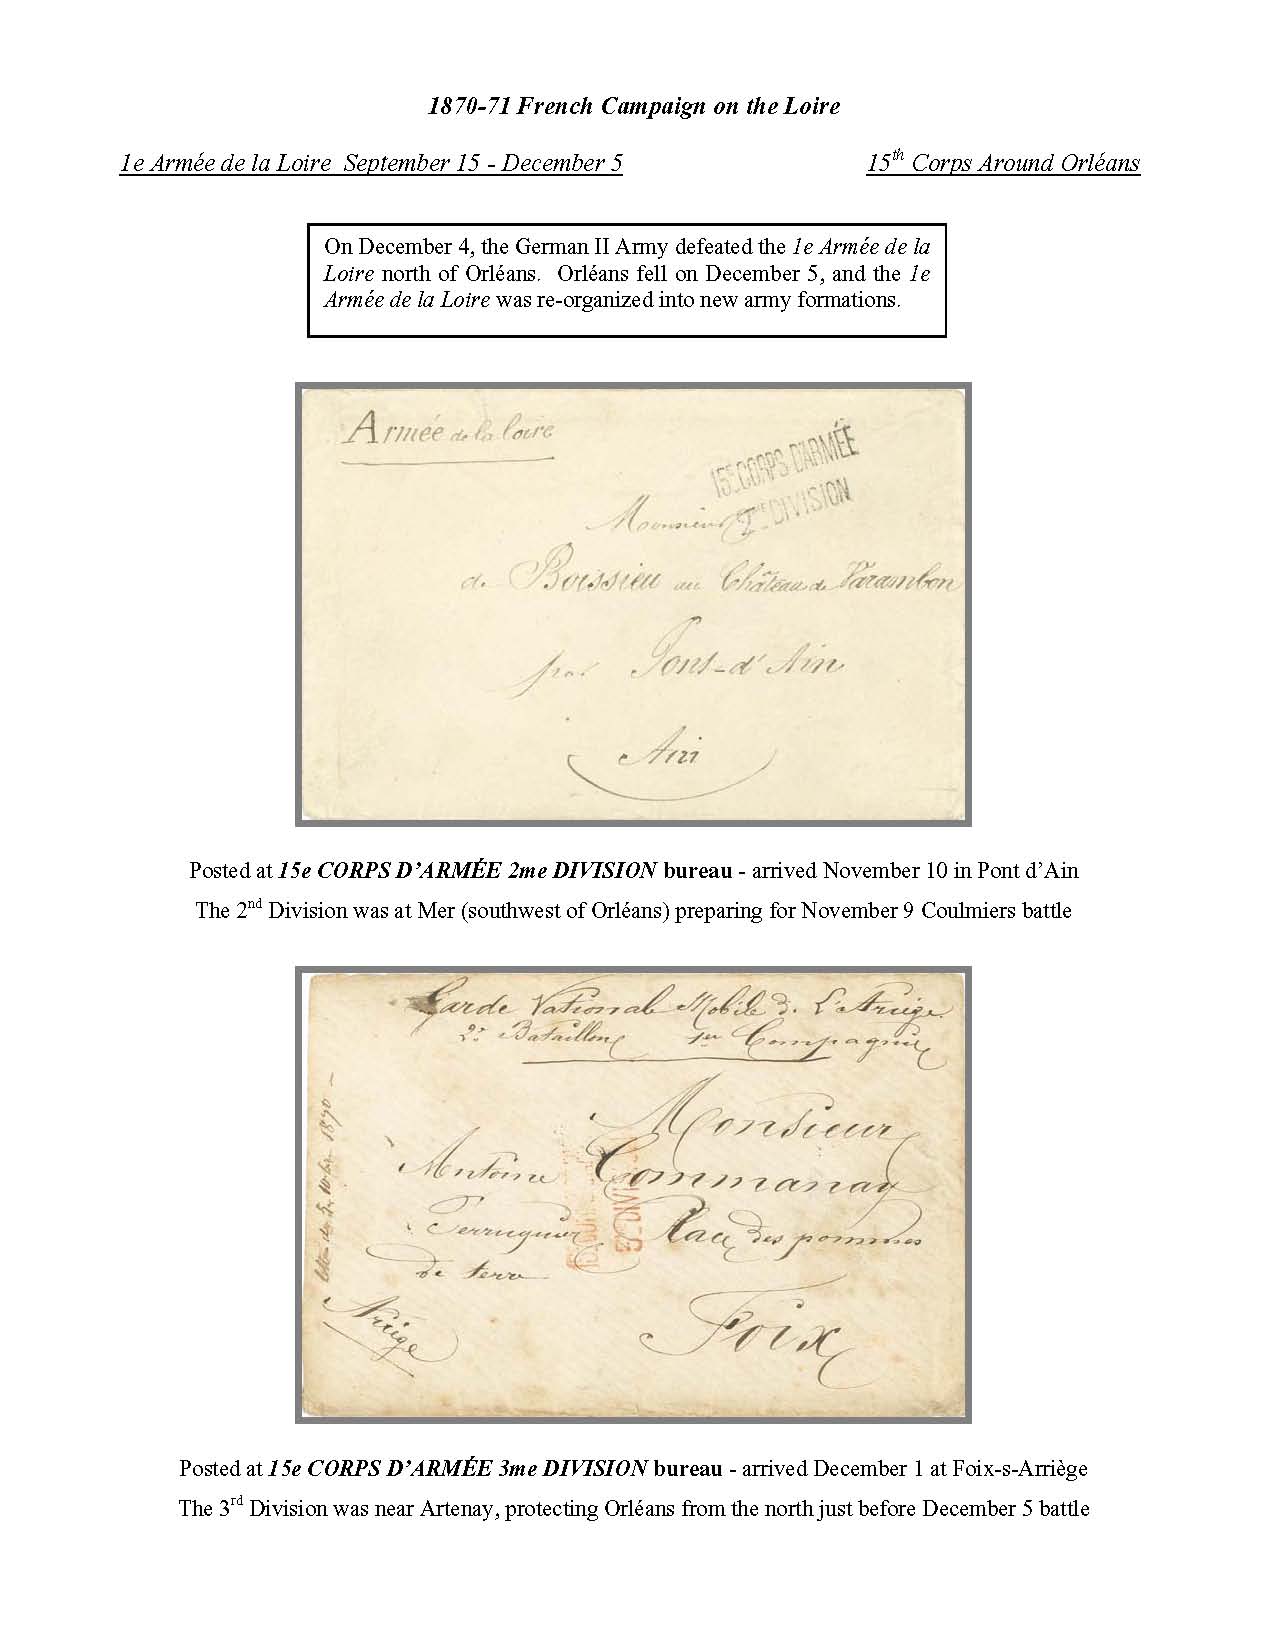 1870-71 French Campaign on the Loire
1e Armée de la Loire September 15 - December 5
15th Corps Around Orléans
On December 4, the German II Army defeated the 1e Armée de la
Loire north of Orléans. Orléans fell on December 5, and the 1e
Armée de la Loire was re-organized into new army formations.
Armée de la Loire
15E CORPS D'ARMÉE
2ME DIVISION
Monsieur
de Boissieu au Château de Varambon
par Pont-d'Ain
Ain
Posted at 15e CORPS D'ARMÉE 2me DIVISION bureau - arrived November 10 in Pont d'Ain
The 2nd Division was at Mer (southwest of Orléans) preparing for November 9 Coulmiers battle
Garde National Mobile de L'Ariège
2e Bataillon 1er Compagnie
Monsieur
Antoine Commanay
Perruquier Place des pommes
de terre
Foix
Ariège
1870
3E DIVI
Posted at 15e CORPS D'ARMÉE 3me DIVISION bureau - arrived December 1 at Foix-s-Arriège
The 3rd Division was near Artenay, protecting Orléans from the north just before December 5 battle